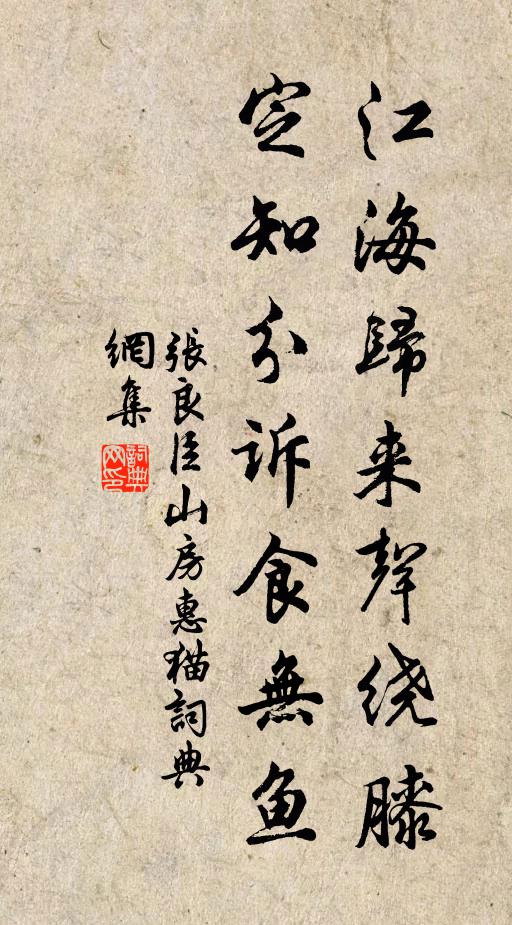 江海歸来聲绕膝
定知分诉食無鱼
張良臣山房惠猫詞典
網集
詞典
网印